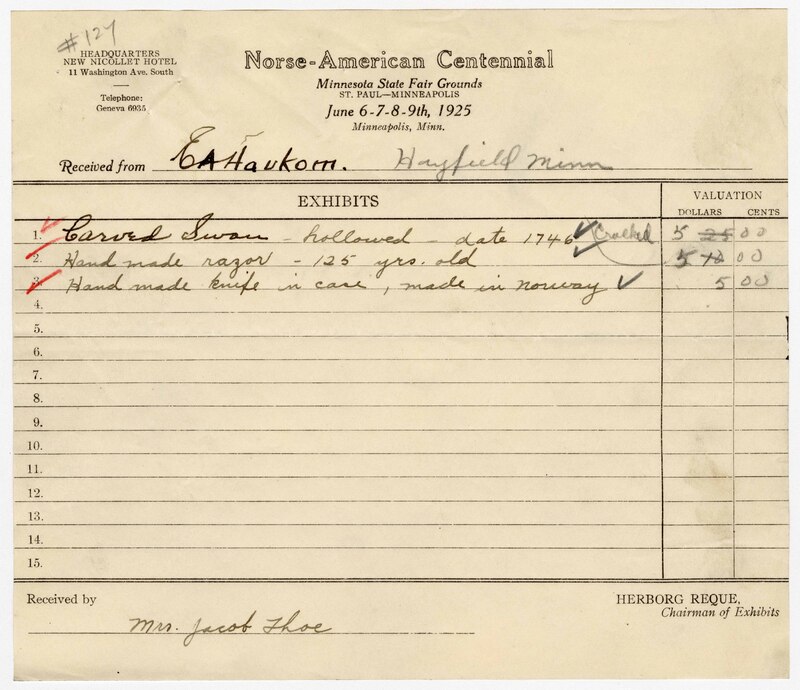 #127
HEADQUARTERS
NEW NICOLLET HOTEL
11 Washington Ave. South
Telephone:
Geneva 6935
Norse-American Centennial
Minnesota State Fair Grounds
ST. PAUL—MINNEAPOLIS
June 6-7-8-9th, 1925
Minneapolis, Minn.
Received from E A Haukom. Hayfield Minn
EXHIBITS
VALUATION
DOLLARS CENTS
1. Carved Swan - hollowed - date 1746 ✓ Cracked 5 25 00
2. Hand made razor - 125 yrs. old ✓ 5 10 00
3. Hand made knife in case, made in norway ✓ 5 00
4.
5.
6.
7.
8.
9.
10.
11.
12.
13.
14.
15.
Received by
Mrs. Jacob Thoe
HERBORG REQUE,
Chairman of Exhibits